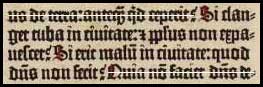 us de terra: anteq̄ qͥd ceperit. Si clan-
get tuba in ciuitate: ⁊ pplus non expa-
uescet: Si erit malū in ciuitate: quod
dn̄s non fecit: Quia nō faciet dn̄s de-